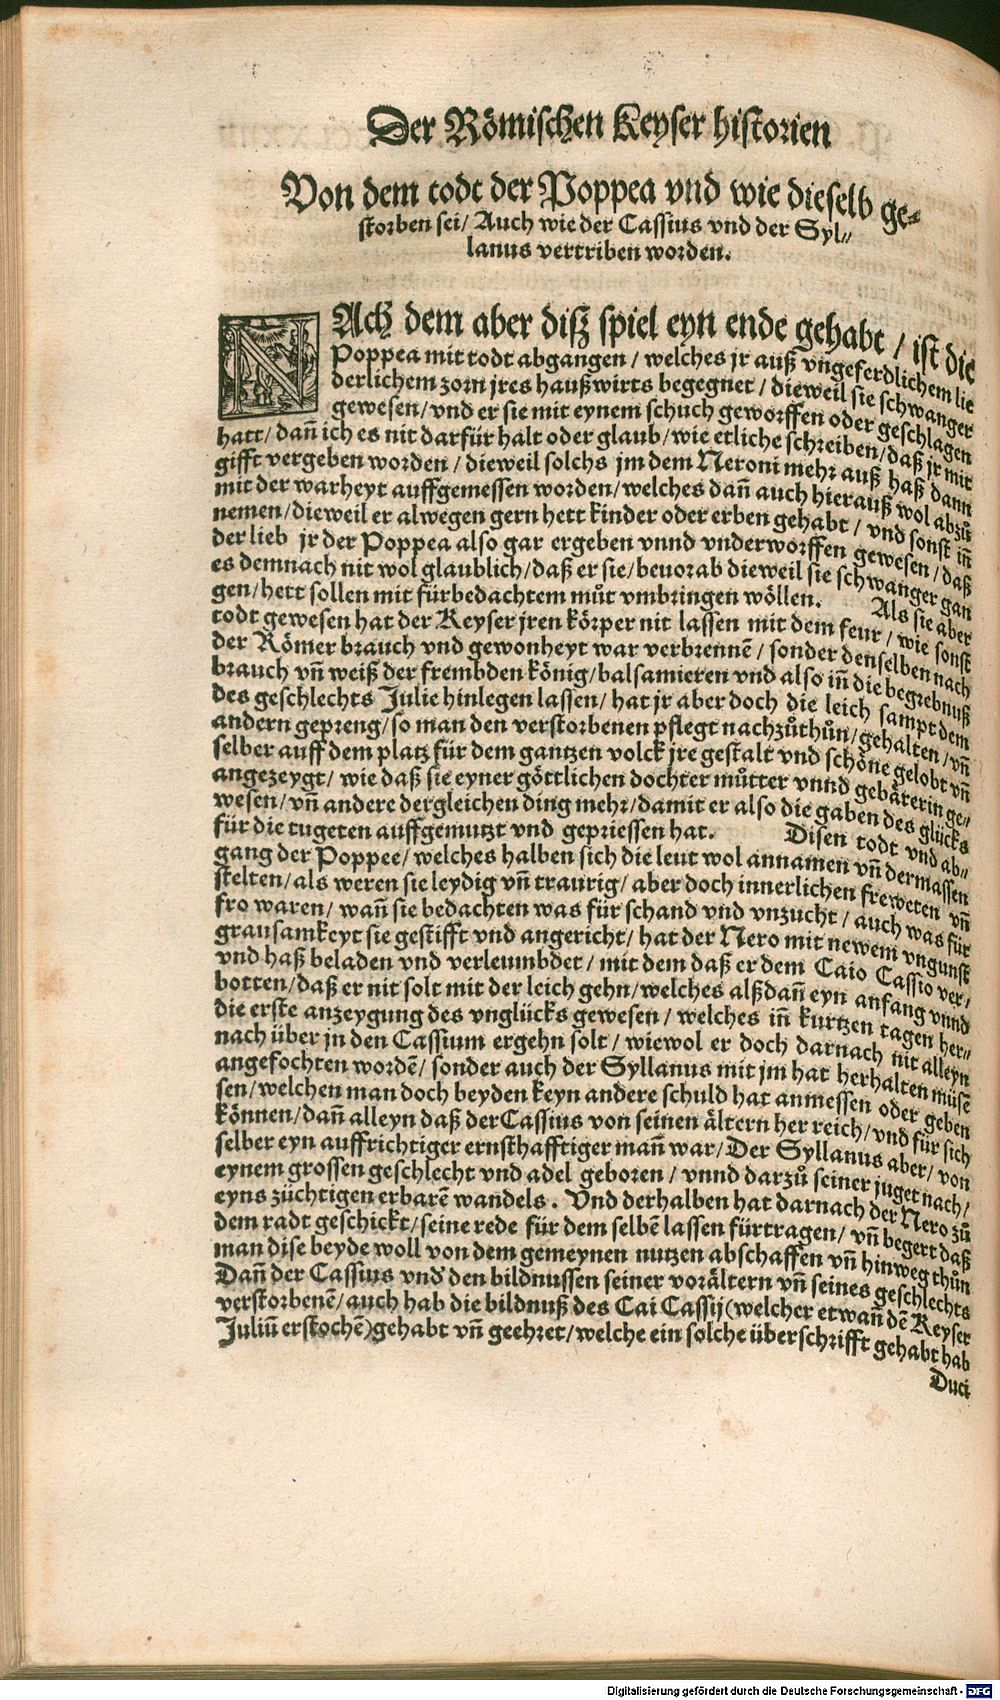 Der Römischen Keyser historien
Von dem todt der Poppea vnd wie dieselb ge⸗
storben sei/ Auch wie der Cassius vnd der Syl⸗
lanus vertriben worden.
NAch dem aber disz spiel eyn ende gehabt / ist die
Poppea mit todt abgangen / welches jr auß vngeferdlichem lie
derlichem zorn jres haußwirts begegnet / dieweil sie schwanger
gewesen/ vnd er sie mit eynem schuch geworffen oder geschlagen
hatt/ dañ ich es nit darfür halt oder glaub/ wie etliche schreiben/ daß jr mit
gifft vergeben worden / dieweil solchs jm dem Neroni mehr auß haß dann
mit der warheyt auffgemessen worden/ welches dañ auch hierauß wol abzů
nemen/ dieweil er alwegen gern hett kinder oder erben gehabt / vnd sonst iñ
der lieb jr der Poppea also gar ergeben vnnd vnderworffen gewesen / daß
es demnach nit wol glaublich/ daß er sie/ beuorab dieweil sie schwanger gan
gen/ hett sollen mit fürbedachtem můt vmbringen wöllen. Als sie aber
todt gewesen hat der Keyser jren körper nit lassen mit dem feur / wie sonst
der Römer brauch vnd gewonheyt war verbrennē / sonder denselben nach
brauch vñ weiß der frembden könig/ balsamieren vnd also iñ die begrebnuß
des geschlechts Julie hinlegen lassen/ hat jr aber doch die leich sampt dem
andern gepreng/ so man den verstorbenen pflegt nachzůthůn/ gehalten / vñ
selber auff dem platz für dem gantzen volck jre gestalt vnd schöne gelobt vñ
angezeygt/ wie daß sie eyner göttlichen dochter můtter vnnd gebärerin ge⸗
wesen/ vñ andere dergleichen ding mehr/ damit er also die gaben des glücks
für die tugeten auffgemutzt vnd gepriessen hat. Disen todt vnd ab⸗
gang der Poppee/ welches halben sich die leut wol annamen vñ dermassen
stelten/ als weren sie leydig vñ traurig/ aber doch innerlichen freweten vñ
fro waren/ wañ sie bedachten was für schand vnd vnzucht / auch was für
grausamkeyt sie gestifft vnd angericht/ hat der Nero mit newem vngunst
vnd haß beladen vnd verleumbdet / mit dem daß er dem Caio Cassio ver⸗
botten/ daß er nit solt mit der leich gehn/ welches alßdañ eyn anfang vnnd
die erste anzeygung des vnglücks gewesen / welches iñ kurtzen tagen her⸗
nach über jn den Cassium ergehn solt / wiewol er doch darnach nit alleyn
angefochten wordē/ sonder auch der Syllanus mit jm hat herhalten müsē
sen/ welchen man doch beyden keyn andere schuld hat anmessen oder geben
können/ dañ alleyn daß der Cassius von seinen ältern her reich/ vnd für sich
selber eyn auffrichtiger ernsthafftiger mañ war/ Der Syllanus aber/ von
eynem grossen geschlecht vnd adel geboren / vnnd darzů seiner juget nach/
eyns züchtigen erbarē wandels. Vnd derhalben hat darnach der Nero zů
dem radt geschickt/ seine rede für dem selbē lassen fürtragen/ vñ begert daß
man dise beyde woll von dem gemeynen nutzen abschaffen vñ hinweg thůn
Dañ der Cassius vnd den bildnussen seiner vorältern vñ seines geschlechts
verstorbenē/ auch hab die bildnuß des Cai Cassij (welcher etwañ dē Keyser
Juliū erstochē) gehabt vñ geehret/ welche ein solche überschrifft gehabt hab
Duci
Digitalisierung gefördert durch die Deutsche Forschungsgemeinschaft - DFG